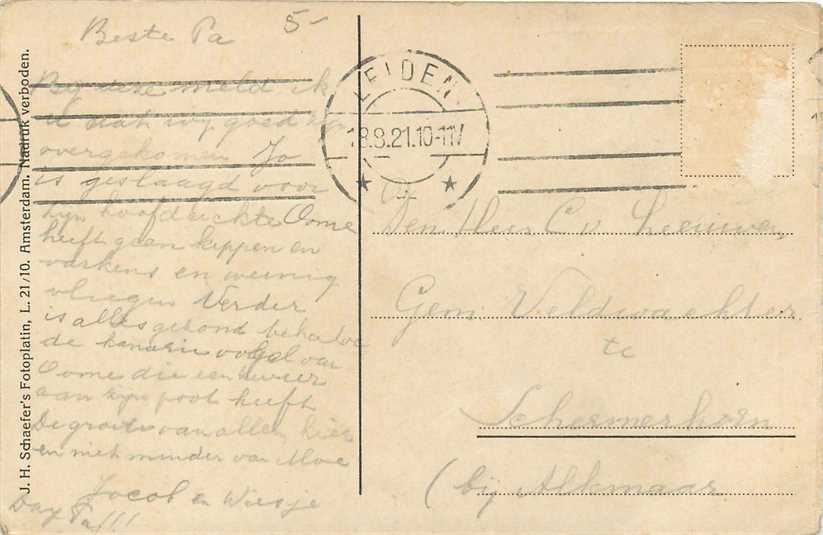 Beste Pa 5-
By deze meld ik
U dat wy goed zyn
overgekomen Jo
is geslaagd voor
zyn hoofdackte Oome
heeft geen kippen en
varkens en weinig
vliegen Verder
is alles gezond behalve
de kanarievogel van
Oome die een zweer
aan zyn poot heeft
De groeten van allen hier
en niet minder van Moe
Jacob en Wiesje
Dag Pa!!!
J. H. Schaefer's Fotoplatin, L. 21/10. Amsterdam. Nadruk verboden.
LEIDEN
18.8.21.10-11V
Den Heer C v. Leeuwen
Gem. Veldwachter
te
Schermerhorn
(bij Alkmaar